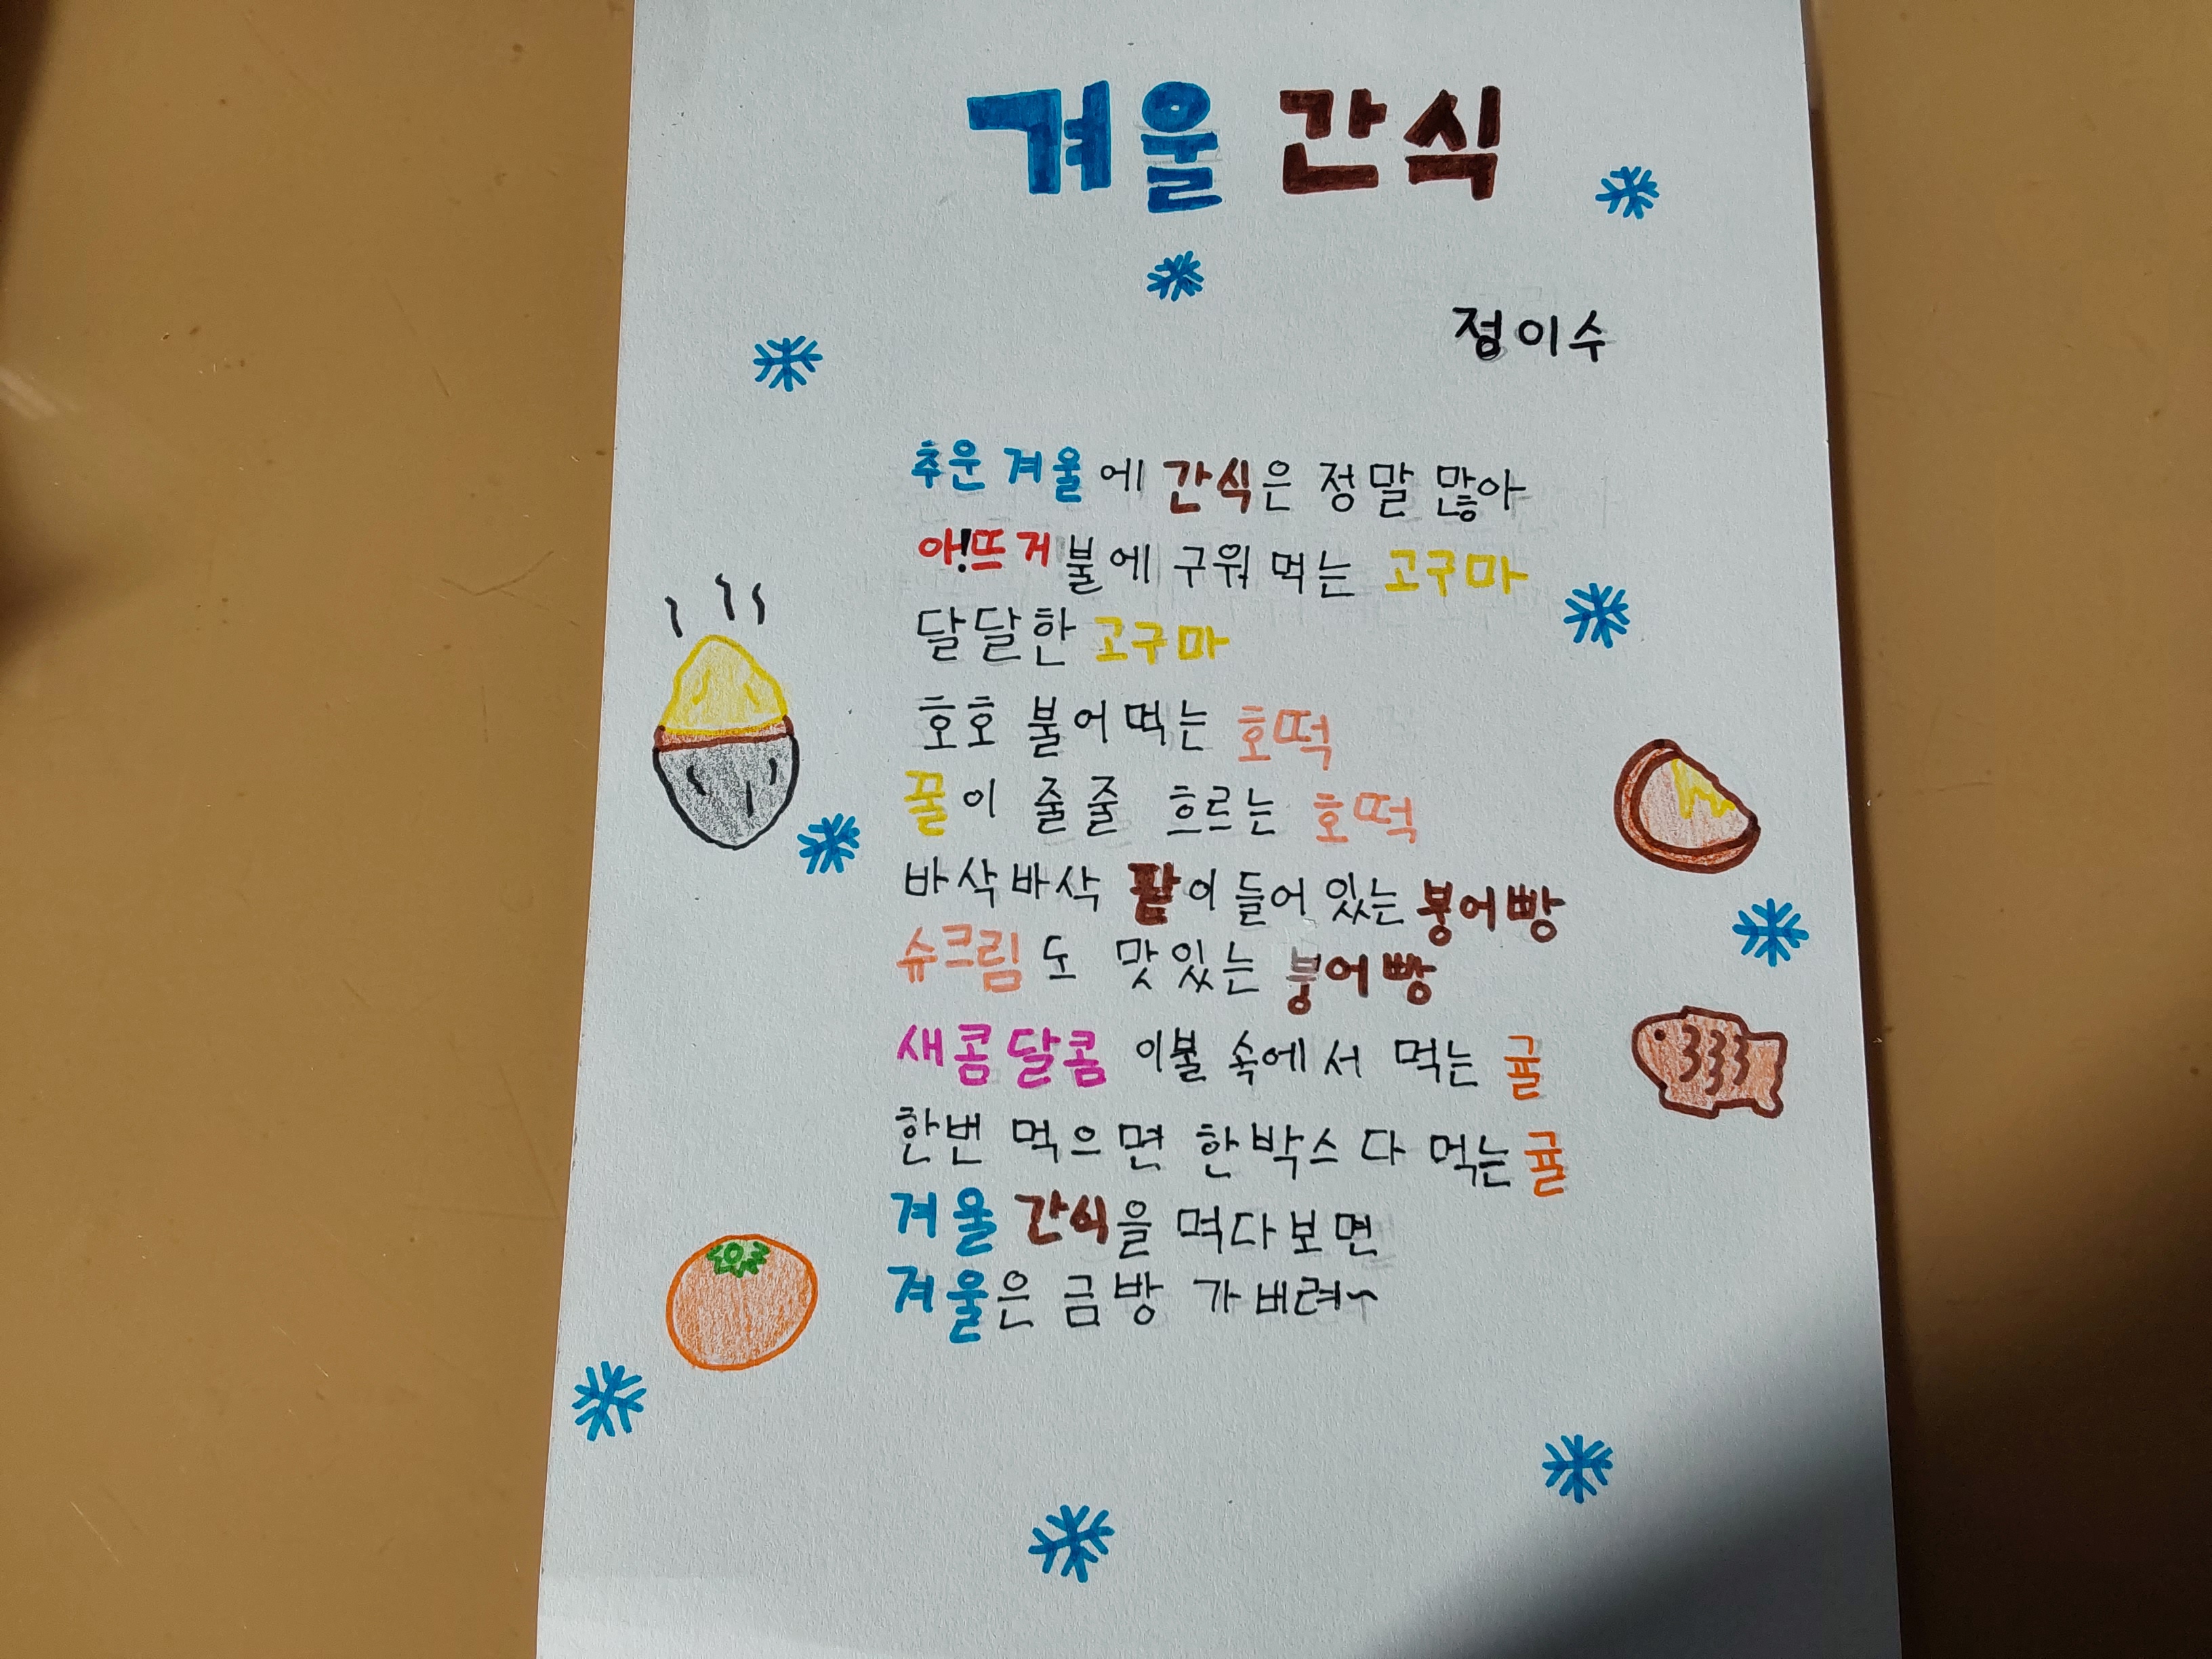 겨울 간식
정이수
추운 겨울에 간식은 정말 많아
아!뜨거 불에 구워 먹는 고구마
달달한 고구마
호호 불어먹는 호떡
꿀이 줄줄 흐르는 호떡
바삭바삭 팥이 들어 있는 붕어빵
슈크림도 맛있는 붕어빵
새콤달콤 이불 속에서 먹는 귤
한번 먹으면 한박스 다 먹는 귤
겨울 간식을 먹다보면
겨울은 금방 가버려~